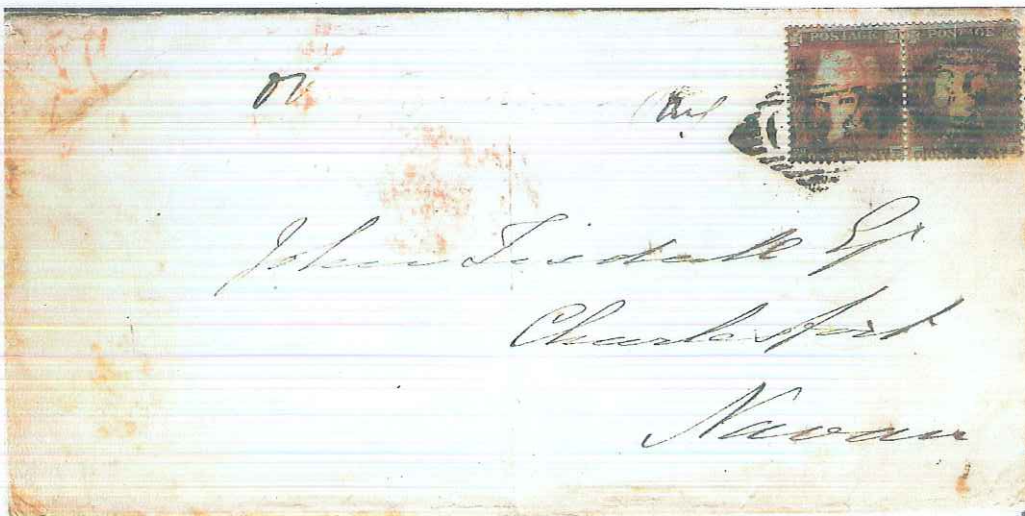 POSTAGE POSTAGE
John Tisdall Esqr
Charlesfort
Navan